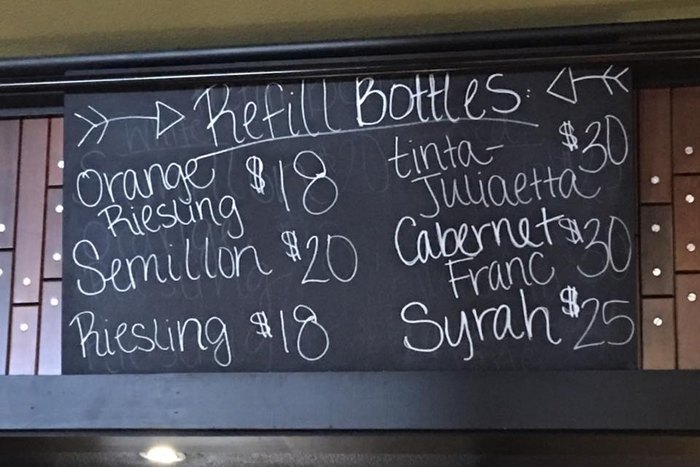 Refill Bottles:
Orange $18
Riesling
Semillon $20
Riesling $18
tinta- $30
Juliaetta
Cabernet $30
Franc
Syrah $25